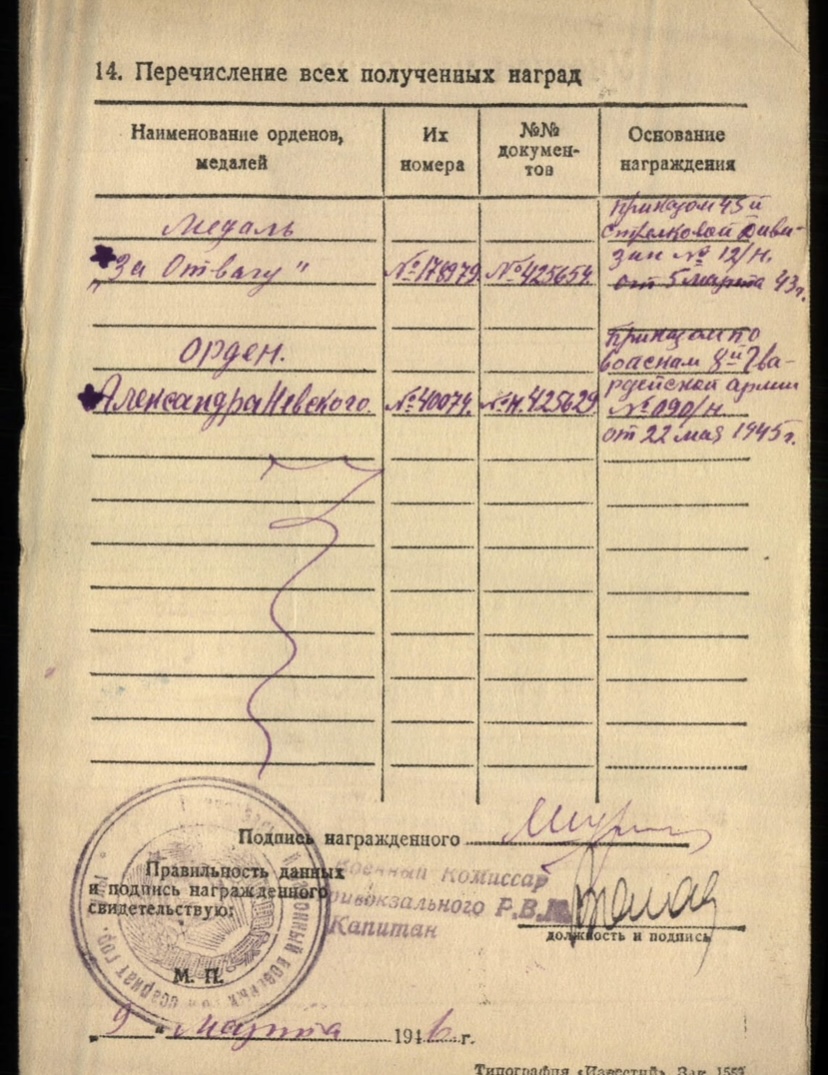 14. Перечисление всех полученных наград
Наименование орденов,
медалей
Их
номера
№№
докумен-
тов
Основание
награждения
Медаль
„За Отвагу"
№178979
№425654
приказом 45й
стрелковой диви-
зии № 12/н.
от 5 марта 43г.
Орден.
Александра Невского.
№40074.
№Н.425629
приказом по
войскам 8й Гва-
рдейской армии
№ 090/н.
от 22 мая 1945г.
Подпись награжденного
Правильность данных
и подпись награжденного
свидетельствую:
Военный Комиссар
Капитан
должность и подпись
М. П.
„9" Марта 1946г.
Типография «Известий». Зак. 1552